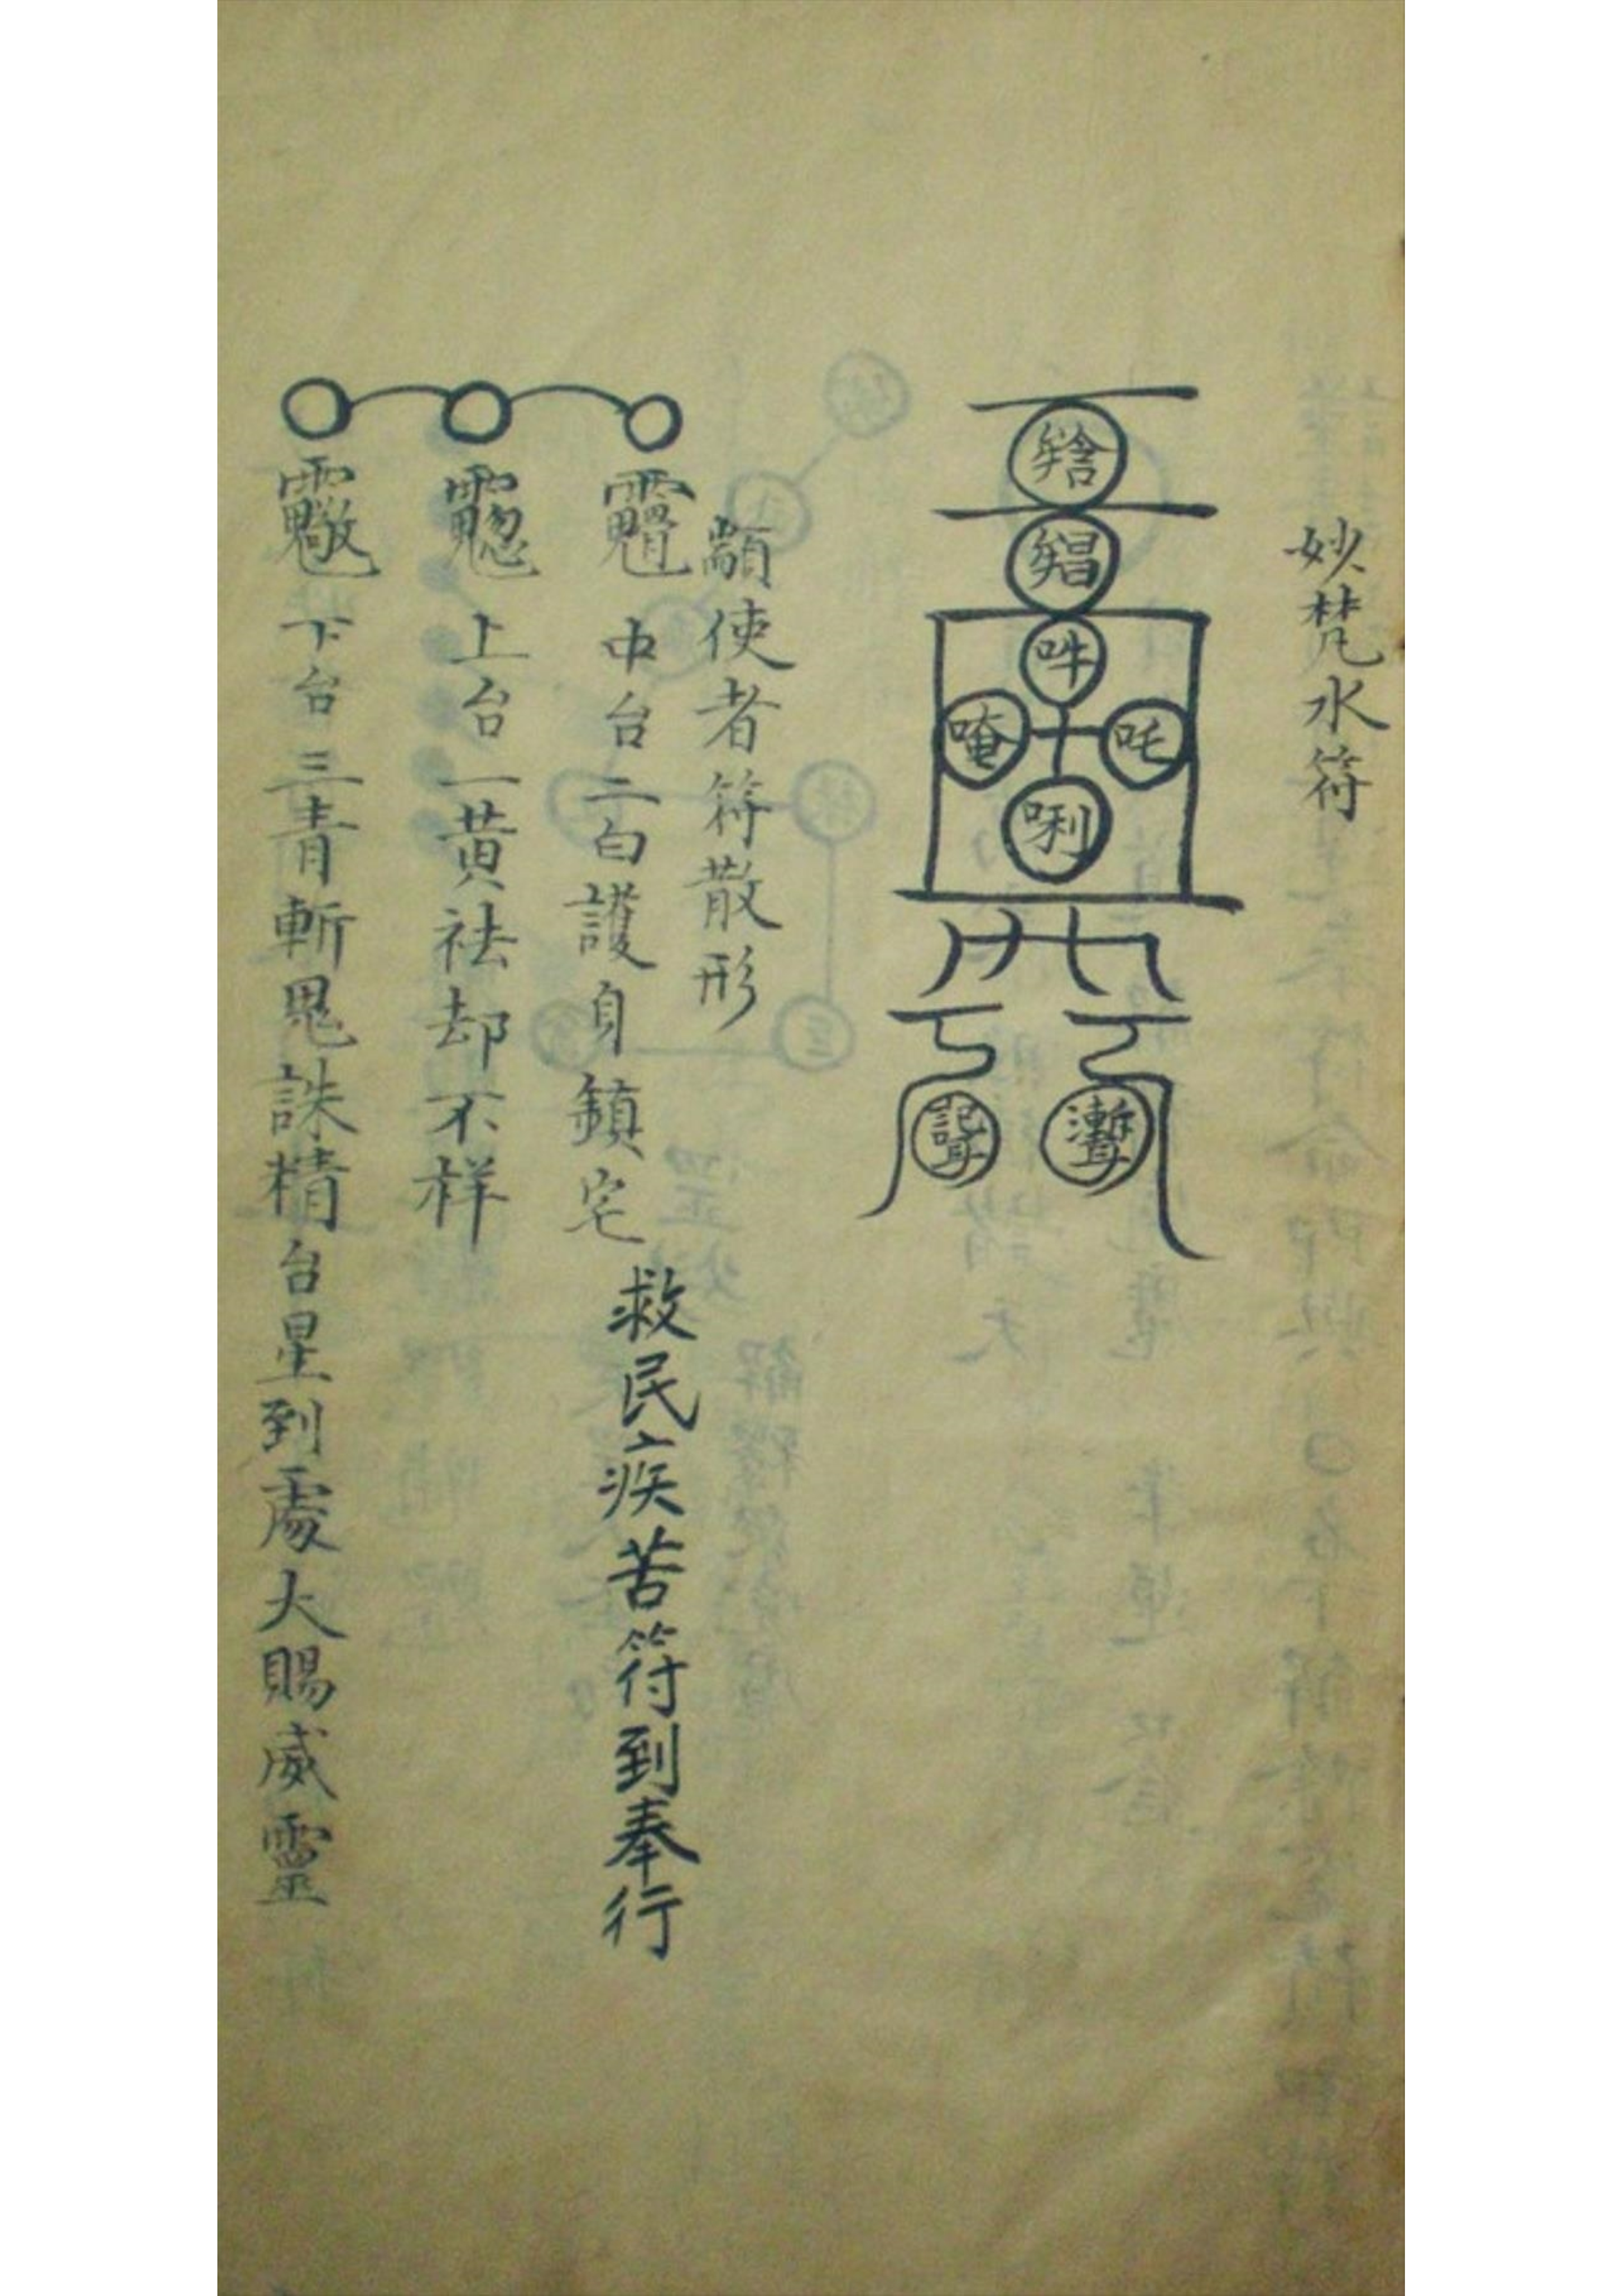 妙梵水符
吽
唵 吒
唎
顓使者符散形
中台二白護身鎮宅
救民疾苦符到奉行
上台一黄祛却不样
下台三青斬鬼誅精台星到處大賜威靈